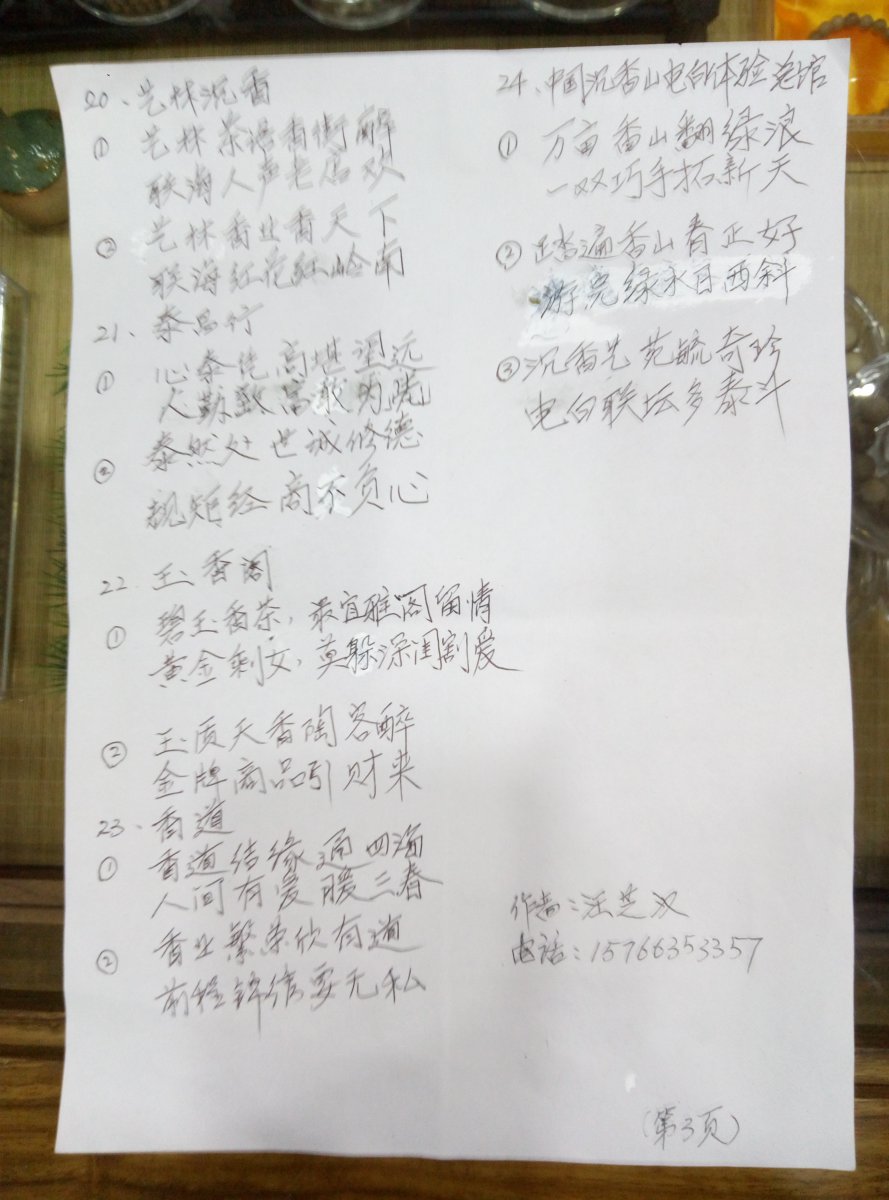 20、艺林沉香
① 艺林茶语香街醉
联海人声老店欢
② 艺林香业香天下
联海红花红岭南
21、泰昌行
① 心泰凭高堪望远
人勤致富敢为先
② 泰然处世诚修德
规矩经商不负心
22、玉香阁
① 碧玉香茶，最宜雅阁留情
黄金剩女，莫躲深闺割爱
② 玉质天香陶客醉
金牌商品引财来
23、香道
① 香道结缘通四海
人间有爱暖三春
② 香业繁荣欣有道
前程锦绣要无私
24、中国沉香山电白体验总馆
① 万亩香山翻绿浪
一双巧手拓新天
② 踏遍香山春正好
游 绿 日西斜
③ 沉香艺苑毓奇珍
电白联坛多泰斗
作者：汪芝汉
电话：15766353357
（第3页）